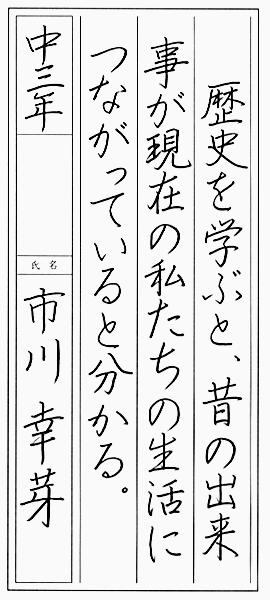 歴史を学ぶと、昔の出来
事が現在の私たちの生活に
つながっていると分かる。
中三年
氏名
市川 幸芽